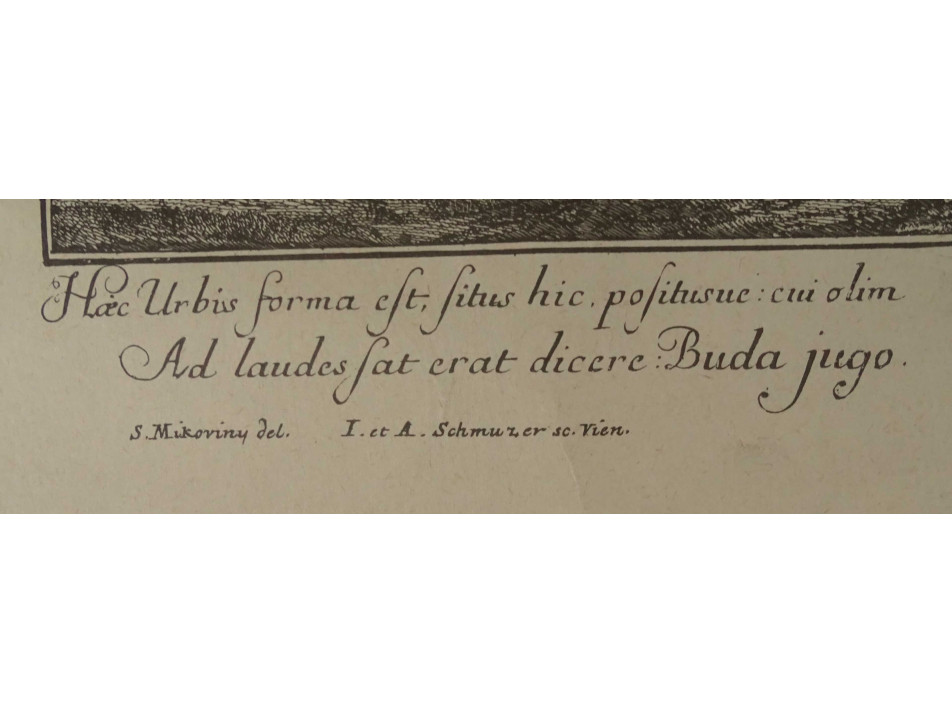 Hæc Urbis forma eſt, ſitus hic, poſitusue: cui olim
Ad laudes ſat erat dicere: Buda jugo.
S. Mikoviny del. I. et A. Schmuzer sc. Vien.